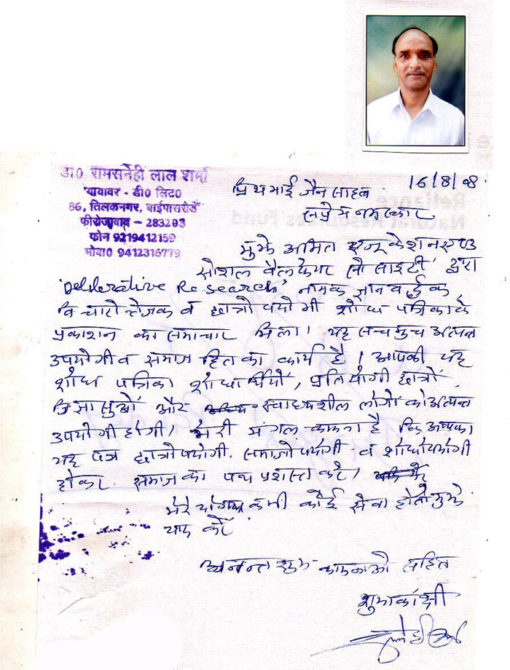 डा० रामसनेही लाल शर्मा
'यायावर' - डी० लिट०
86, तिलकनगर, बाईपासरोड
फीरोजाबाद – 283203
फोन 9219412159
मोबा० 9412316779
16/8/08
प्रिय भाई जैन साहब
सप्रेम नमस्कार
मुझे अमित एजूकेशनल एण्ड
सोशल वैलफेयर सोसाइटी द्वारा
'Deliberative Research' नामक ज्ञानवर्द्धक,
विचारोत्तेजक व छात्रोपयोगी शोध पत्रिका के
प्रकाशन का समाचार मिला। यह सचमुच अत्यन्त
उपयोगी व समाज हित का कार्य है। आपकी यह
शोध पत्रिका शोधार्थियों, प्रतियोगी छात्रों,
जिज्ञासुओं और स्वाध्यशील लोगों को अत्यन्त
उपयोगी होगी। मेरी मंगल कामना है कि आपका
यह पत्र छात्रोपयोगी, समाजोपयोगी व शोधोपयोगी
होकर समाज का पथ प्रशस्त करे।
मेरे योग्य कभी कोई सेवा हो तो मुझे
याद करें
अनन्त शुभ कामनाओं सहित
शुभाकांक्षी